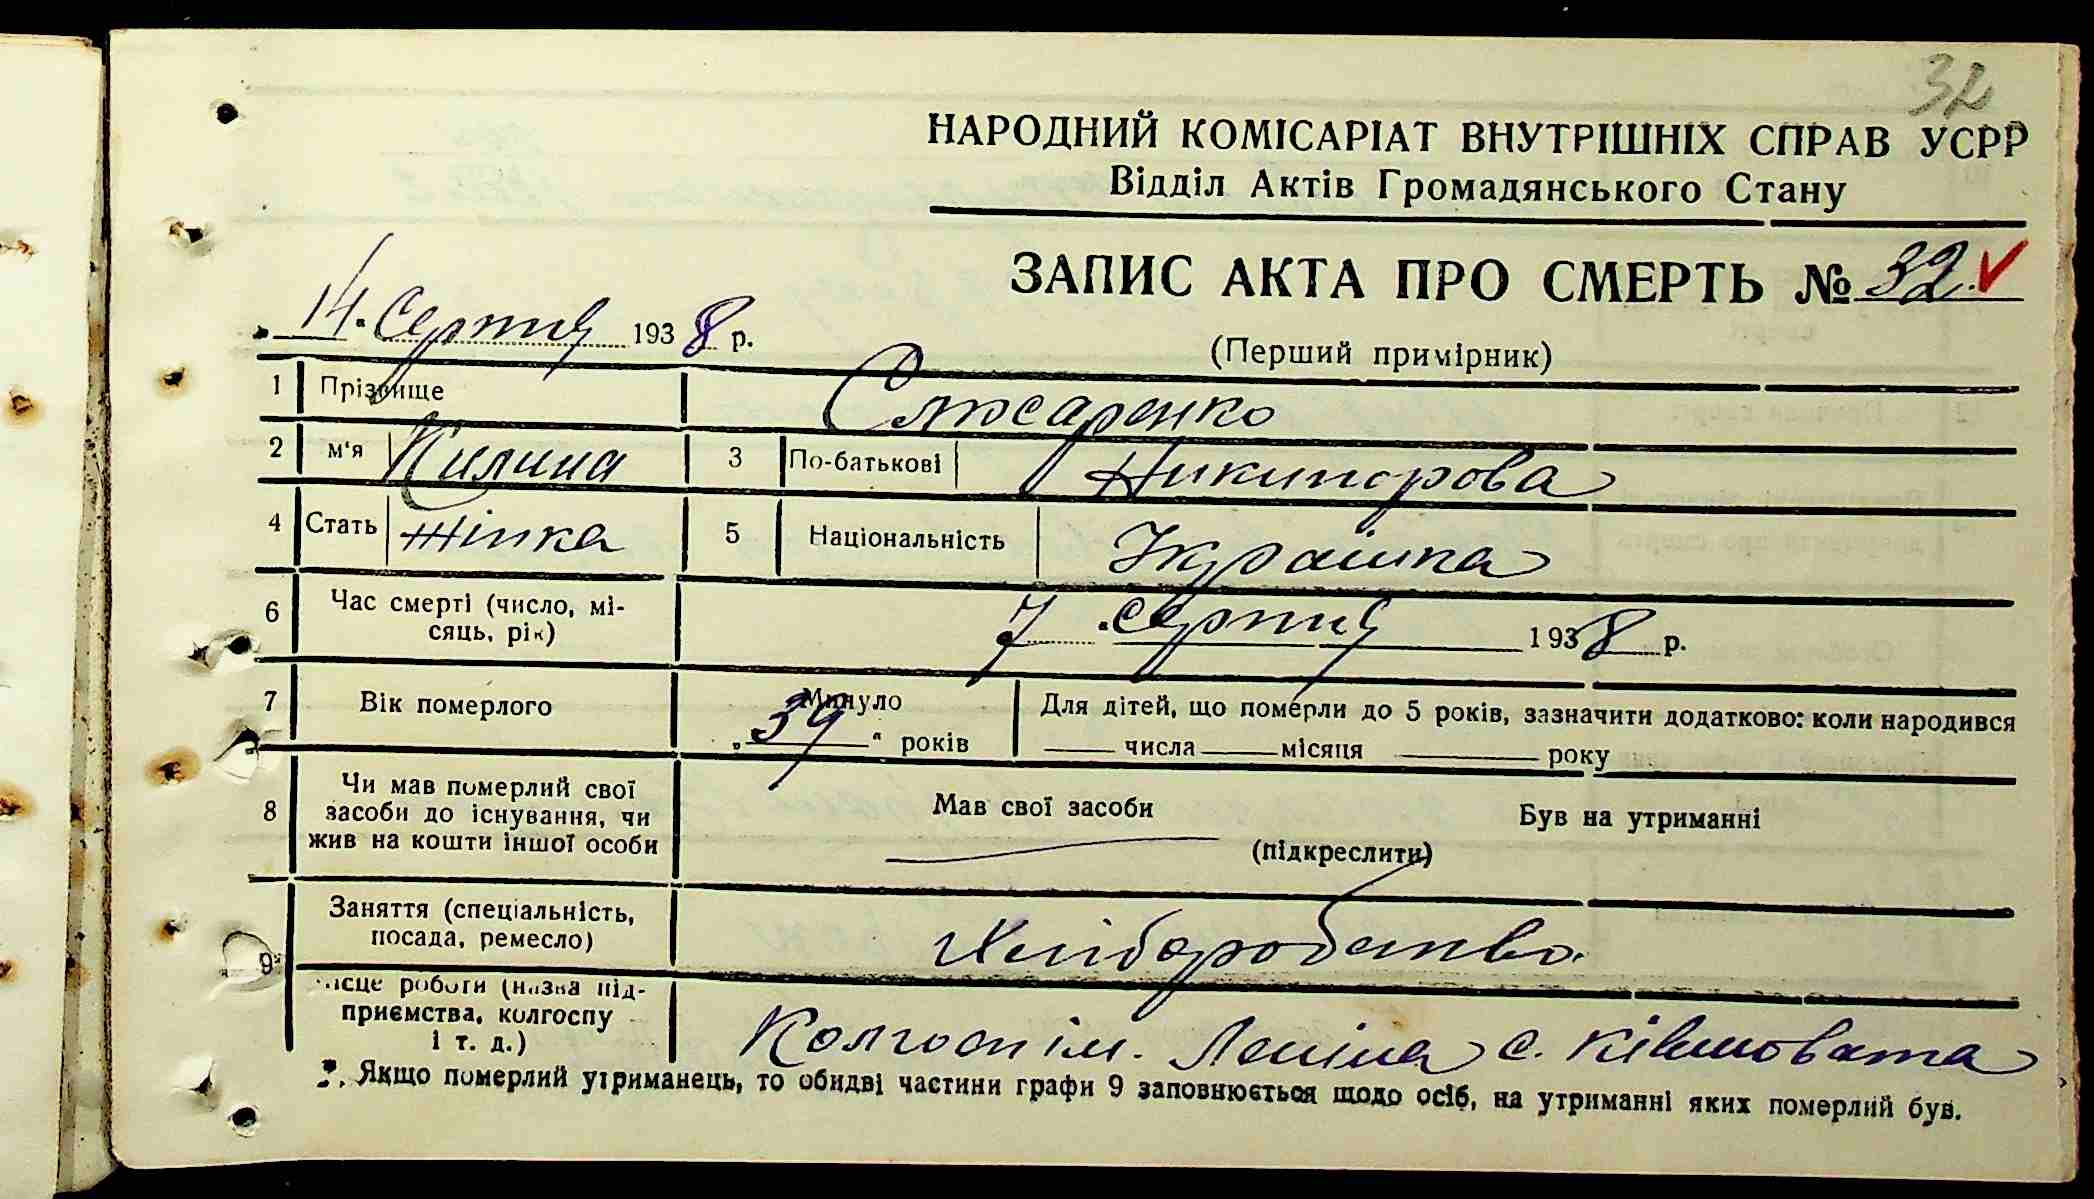 32
НАРОДНИЙ КОМІСАРІАТ ВНУТРІШНІХ СПРАВ УСРР
Відділ Актів Громадянського Стану
ЗАПИС АКТА ПРО СМЕРТЬ № 32
„14“ Серпня 1938 р.
(Перший примірник)
1 Прізвище Слюсаренко
2 м'я Килина 3 По-батькові Никипорова
4 Стать Жінка 5 Національність Українка
6 Час смерті (число, мі-
сяць, рік) 7 „серпня 1938 р.
7 Вік померлого Минуло „39“ років Для дітей, що померли до 5 років, зазначити додатково: коли народився
числа місяця року
8 Чи мав померлий свої
засоби до існування, чи
жив на кошти іншої особи
Мав свої засоби Був на утриманні
(підкреслити)
9 Заняття (спеціальність,
посада, ремесло) Хліборобство.
ісце роботи (назва під-
приємства, колгоспу
і т. д.) Колгосп ім. Леніна с. Ківшовата
*. Якщо померлий утриманець, то обидві частини графи 9 заповнюється щодо осіб, на утриманні яких померлий був.